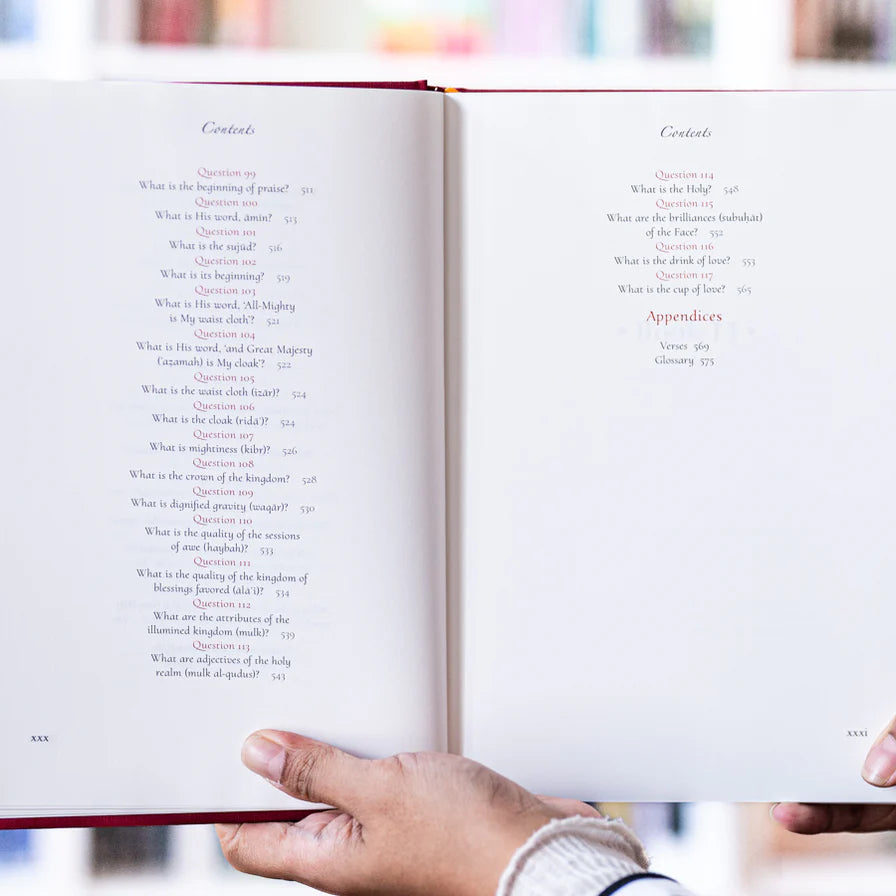 Contents
Question 99
What is the beginning of praise? 511
Question 100
What is His word, āmīn? 513
Question 101
What is the sujūd? 516
Question 102
What is its beginning? 519
Question 103
What is His word, ‘All-Mighty
is My waist cloth’? 521
Question 104
What is His word, ‘and Great Majesty
(ʿaẓamah) is My cloak’? 522
Question 105
What is the waist cloth (izār)? 524
Question 106
What is the cloak (ridāʾ)? 524
Question 107
What is mightiness (kibr)? 526
Question 108
What is the crown of the kingdom? 528
Question 109
What is dignified gravity (waqār)? 530
Question 110
What is the quality of the sessions
of awe (haybah)? 533
Question 111
What is the quality of the kingdom of
blessings favored (ālāʾī)? 534
Question 112
What are the attributes of the
illumined kingdom (mulk)? 539
Question 113
What are adjectives of the holy
realm (mulk al-qudus)? 543
xxx
Contents
Question 114
What is the Holy? 548
Question 115
What are the brilliances (subuḥāt)
of the Face? 552
Question 116
What is the drink of love? 553
Question 117
What is the cup of love? 565
Appendices
Verses 569
Glossary 575
xxxi